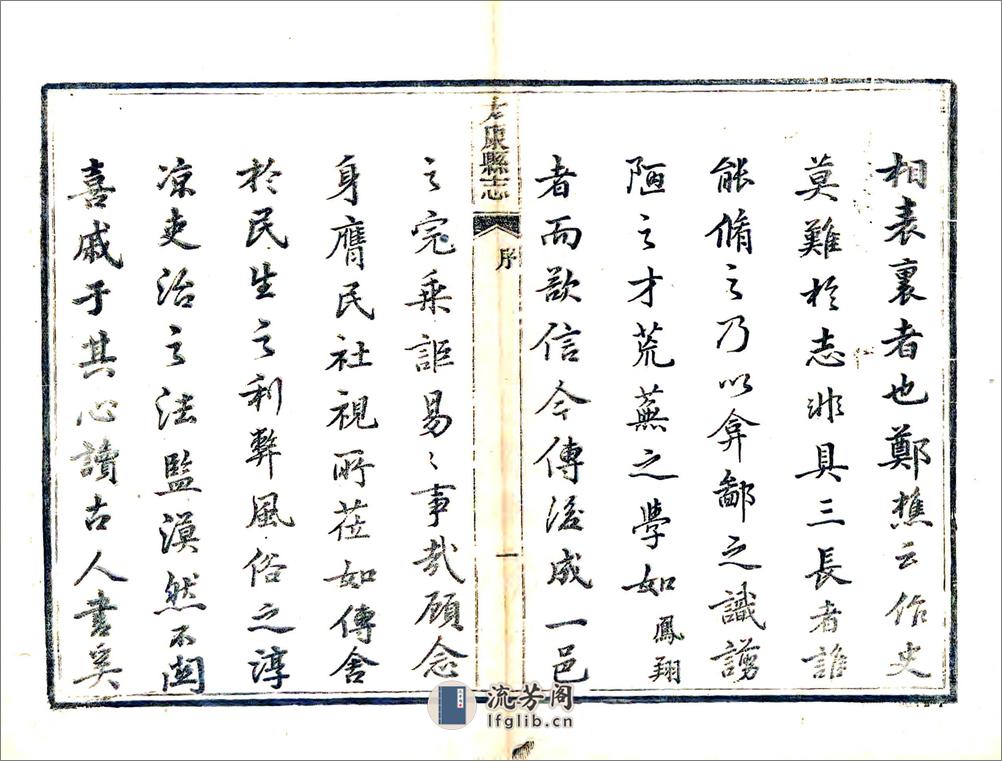 相表裏者也鄭樵云作史
莫難於志非具三長者誰
能脩之乃以弇鄙之識謭
陋之才荒蕪之學如鳳翔
者而欲信今傳後成一邑
太康縣志
序
一
之完乘詎易〻事哉顧念
身膺民社視所莅如傳舍
於民生之利弊風俗之淳
凉吏治之法監漠然不関
喜戚于其心讀古人書奚
流芳阁
lfglib.cn